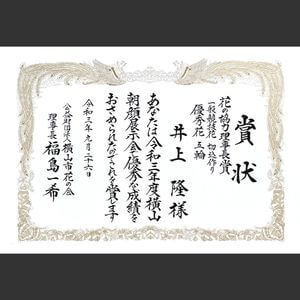 賞状
花の協力理事長賞
一般競技花 切込作り
優秀花 五輪
井上 隆様
あなたは令和三年度横山
朝顔展示会に優秀な成績を
おさめられたのでこれを賞します
令和三年九月二十六日
公益財団法人横山市花の会
理事長 福島一希